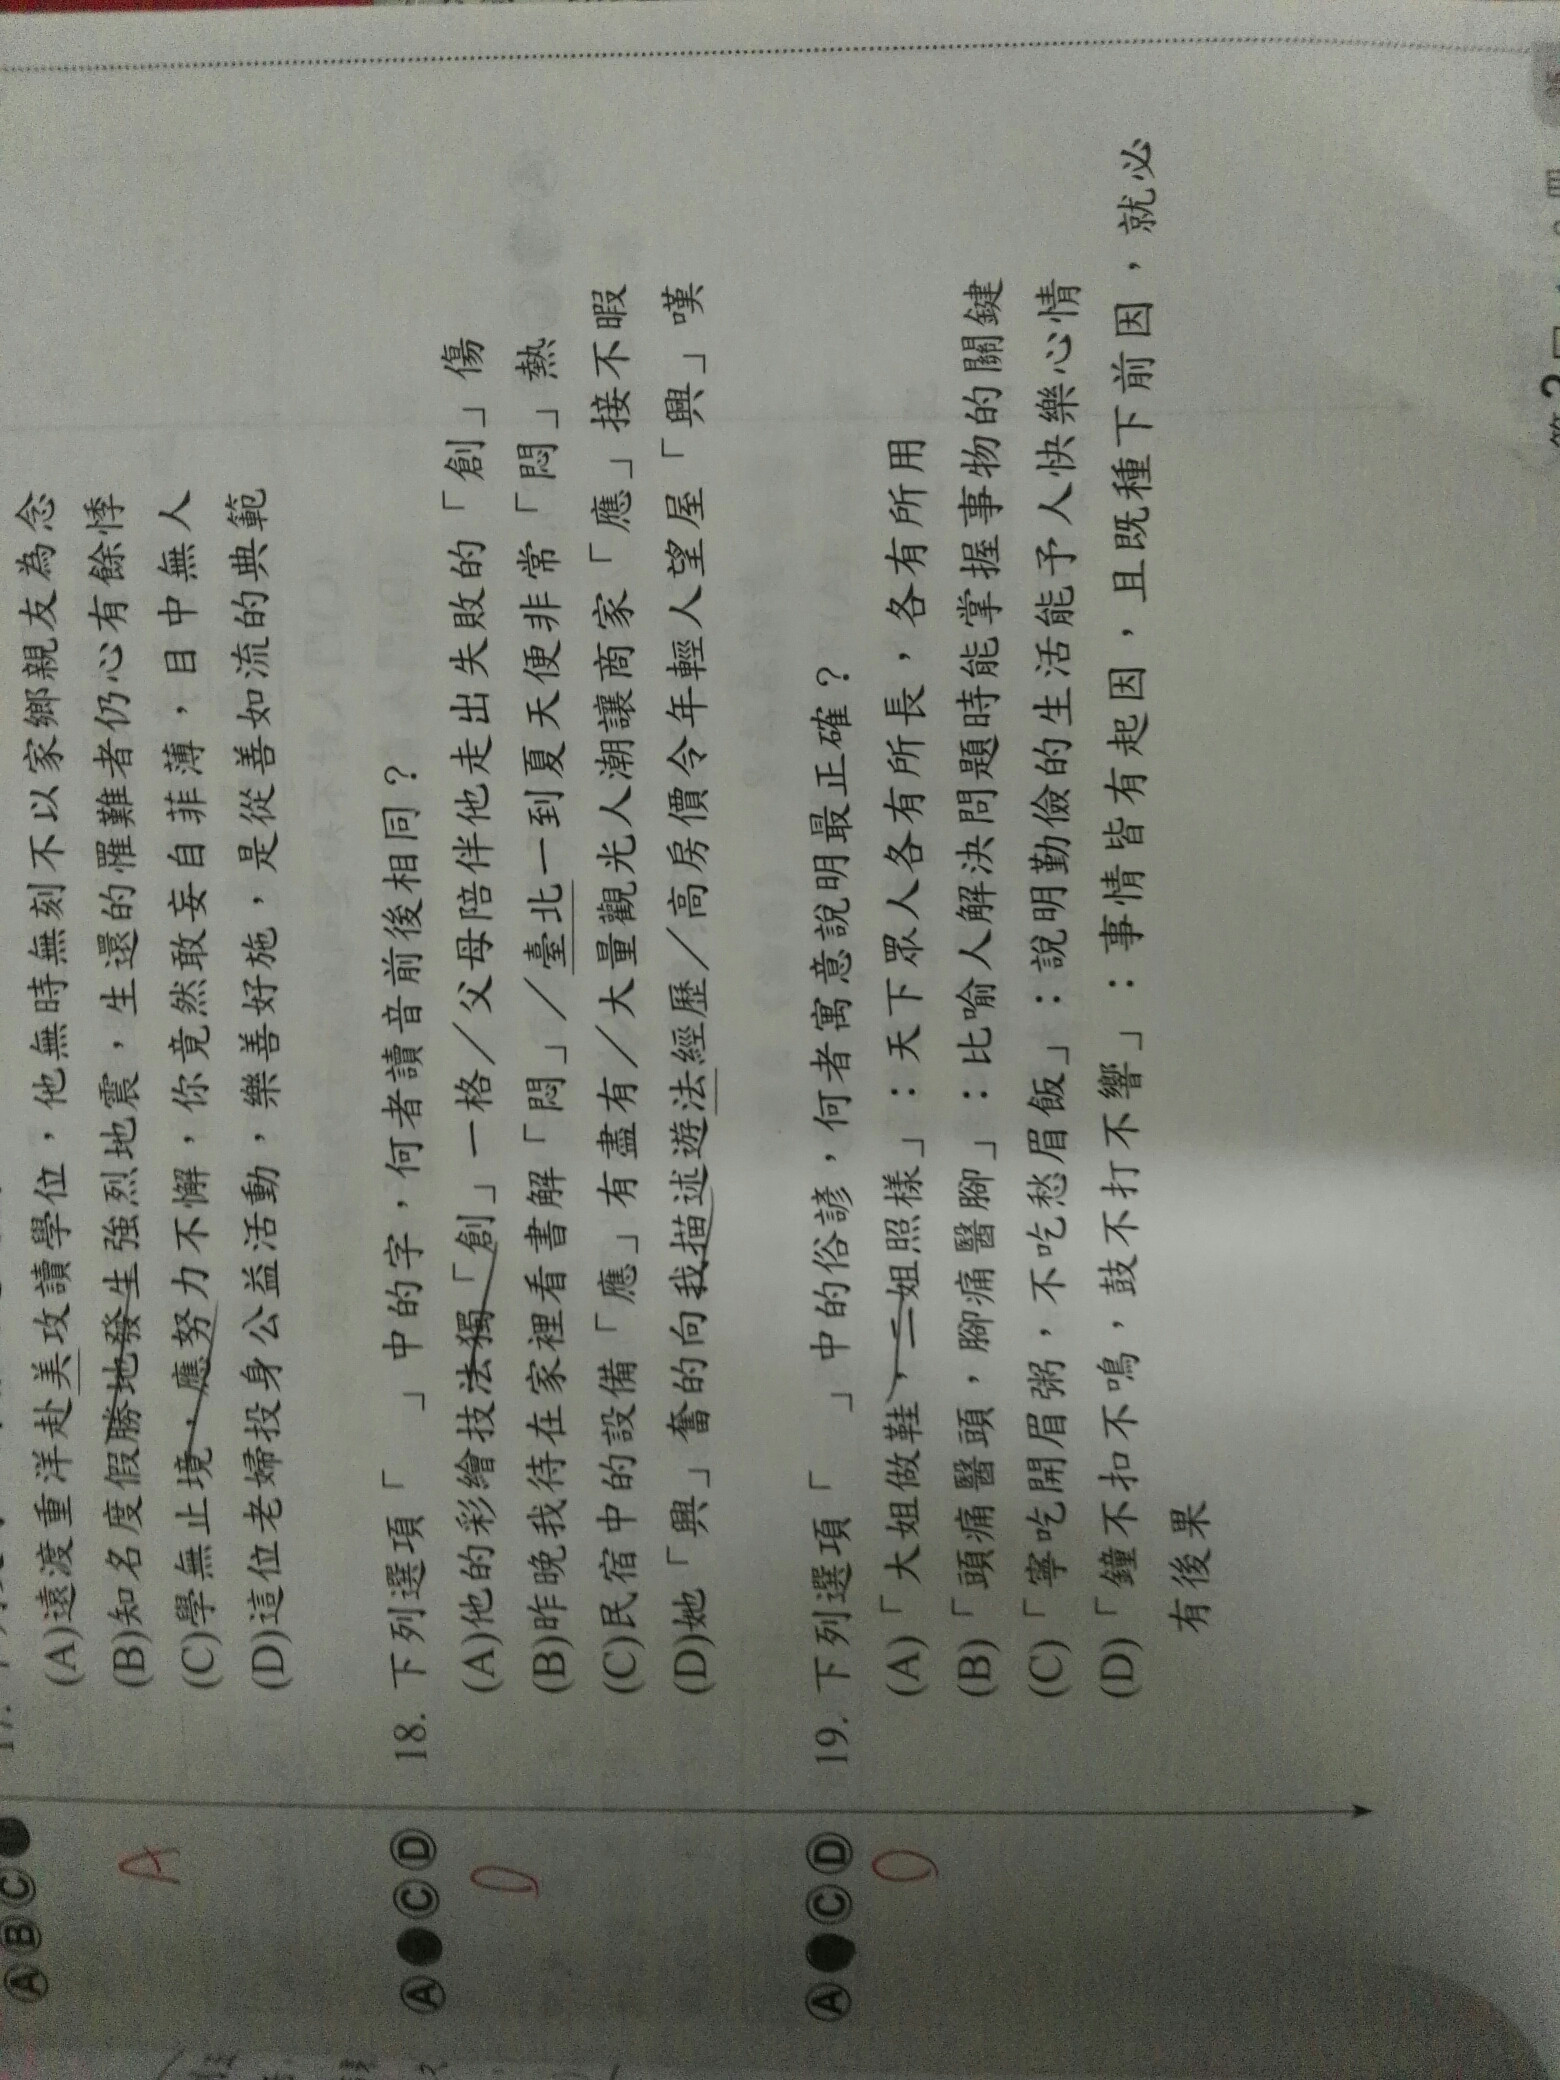 (A)遠渡重洋赴美攻讀學位，他無時無刻不以家鄉親友為念
(B)知名度假勝地發生強烈地震，生還的罹難者仍心有餘悸
(C)學無止境，應努力不懈，你竟然敢妄自菲薄，目中無人
(D)這位老婦投身公益活動，樂善好施，是從善如流的典範
A B C
A
18. 下列選項「　」中的字，何者讀音前後相同？
(A)他的彩繪技法獨「創」一格／父母陪伴他走出失敗的「創」傷
(B)昨晚我待在家裡看書解「悶」／臺北一到夏天便非常「悶」熱
(C)民宿中的設備「應」有盡有／大量觀光人潮讓商家「應」接不暇
(D)她「興」奮的向我描述遊法經歷／高房價令年輕人望屋「興」嘆
A C D
D
19. 下列選項「　」中的俗諺，何者寓意說明最正確？
(A)「大姐做鞋，二姐照樣」：天下眾人各有所長，各有所用
(B)「頭痛醫頭，腳痛醫腳」：比喻人解決問題時能掌握事物的關鍵
(C)「寧吃開眉粥，不吃愁眉飯」：說明勤儉的生活能予人快樂心情
(D)「鐘不扣不鳴，鼓不打不響」：事情皆有起因，且既種下前因，就必
有後果
A C D
D